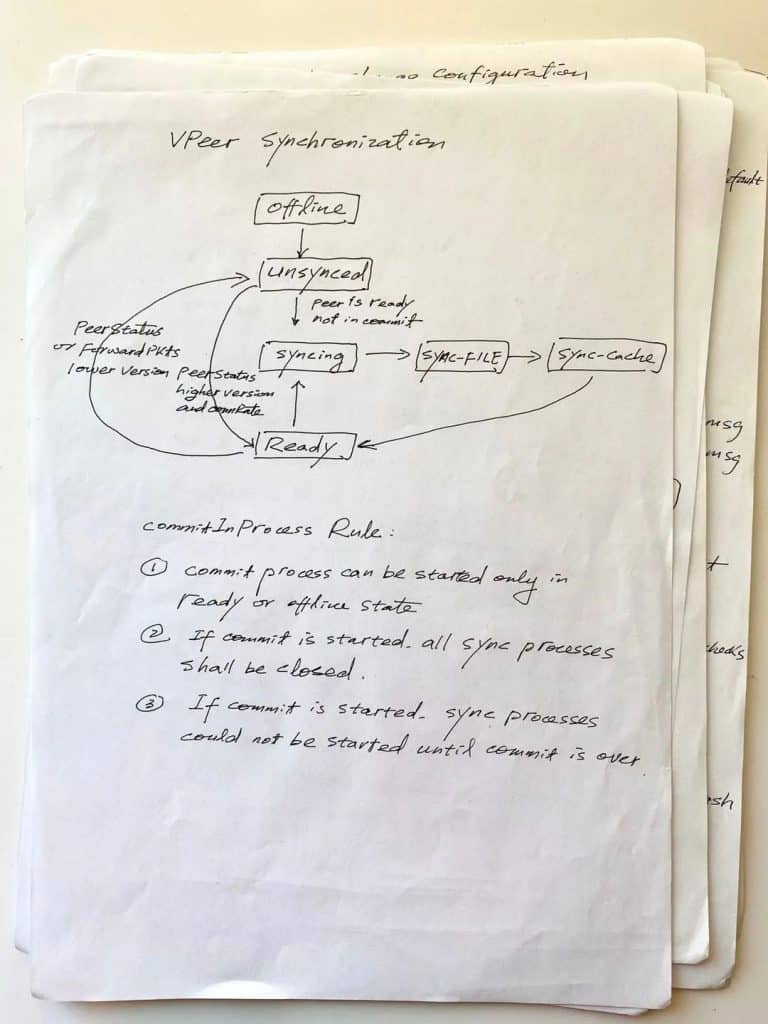 configuration
VPeer Synchronization
offline
unsynced
Peer is ready
not in commit
PeerStatus
or ForwardPkts
lower version
PeerStatus
higher version
and
syncing
SYNC-FILE
sync-cache
Ready
efault
msg
msg
commitInProcess Rule:
① commit process can be started only in
ready or offline state
② If commit is started. all sync processes
shall be closed.
③ If commit is started. sync processes
could not be started until commit is over.
checks
osh